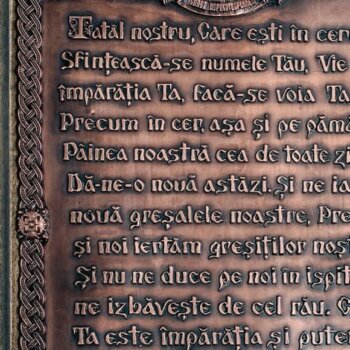 Tatăl nostru, Care ești în cer
Sfințească-se numele Tău, Vie
împărăția Ta, facă-se voia Ta
Precum în cer, așa și pe pămâ
Pâinea noastră cea de toate zi
Dă-ne-o nouă astăzi. Și ne ia
nouă greșalele noastre, Pre
și noi iertăm greșiților noș
Și nu ne duce pe noi în ispit
ne izbăvește de cel rău. C
Ta este împărăția și pute